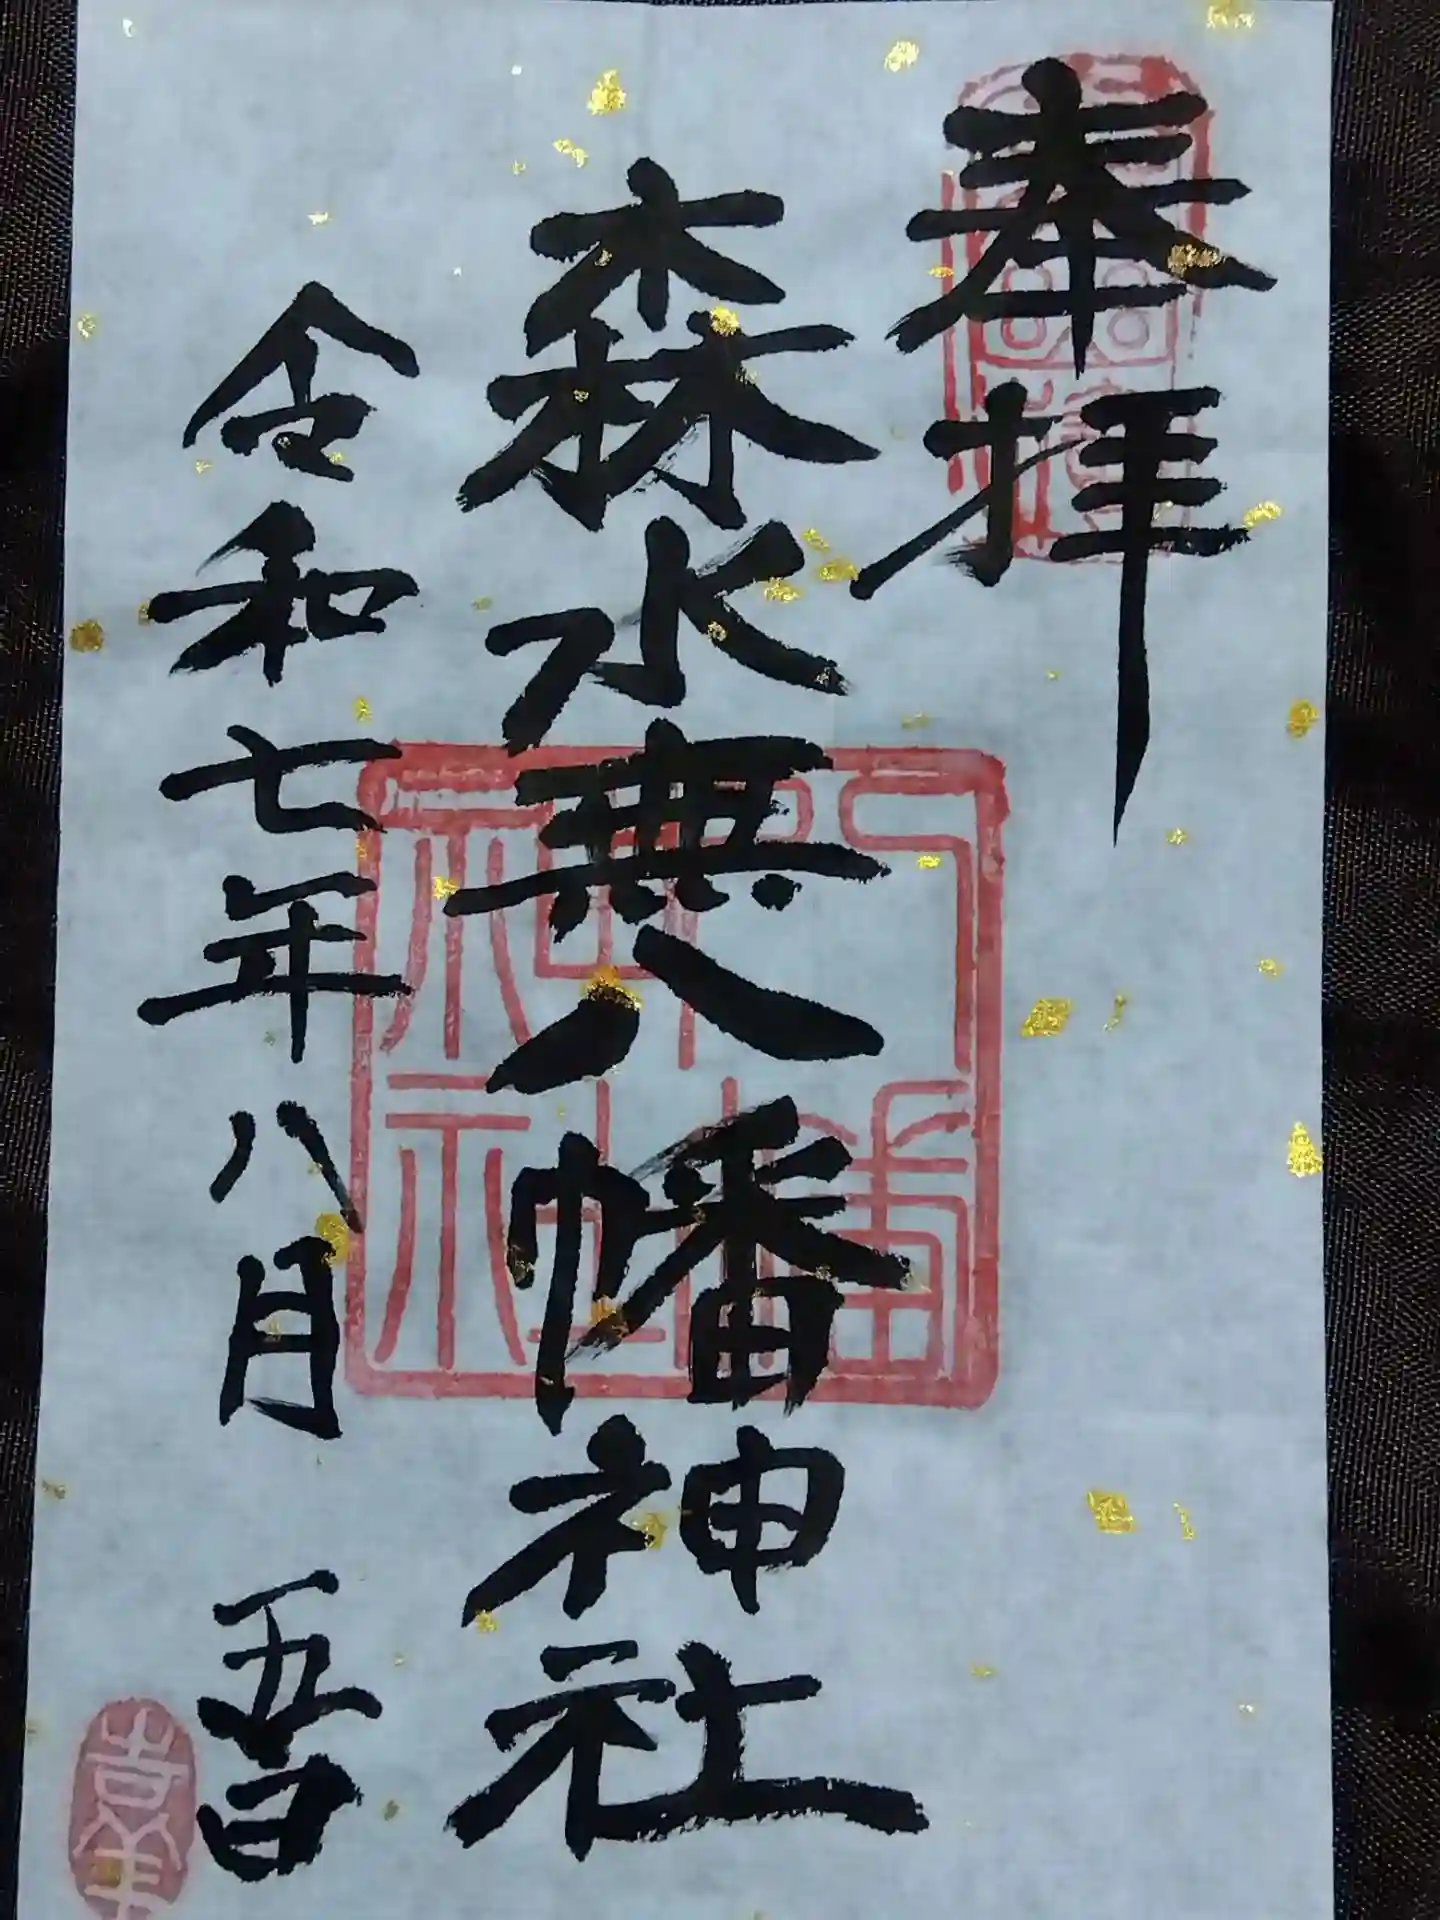 奉拝
森水無八幡神社
令和七年八月 五日
八幡
神社